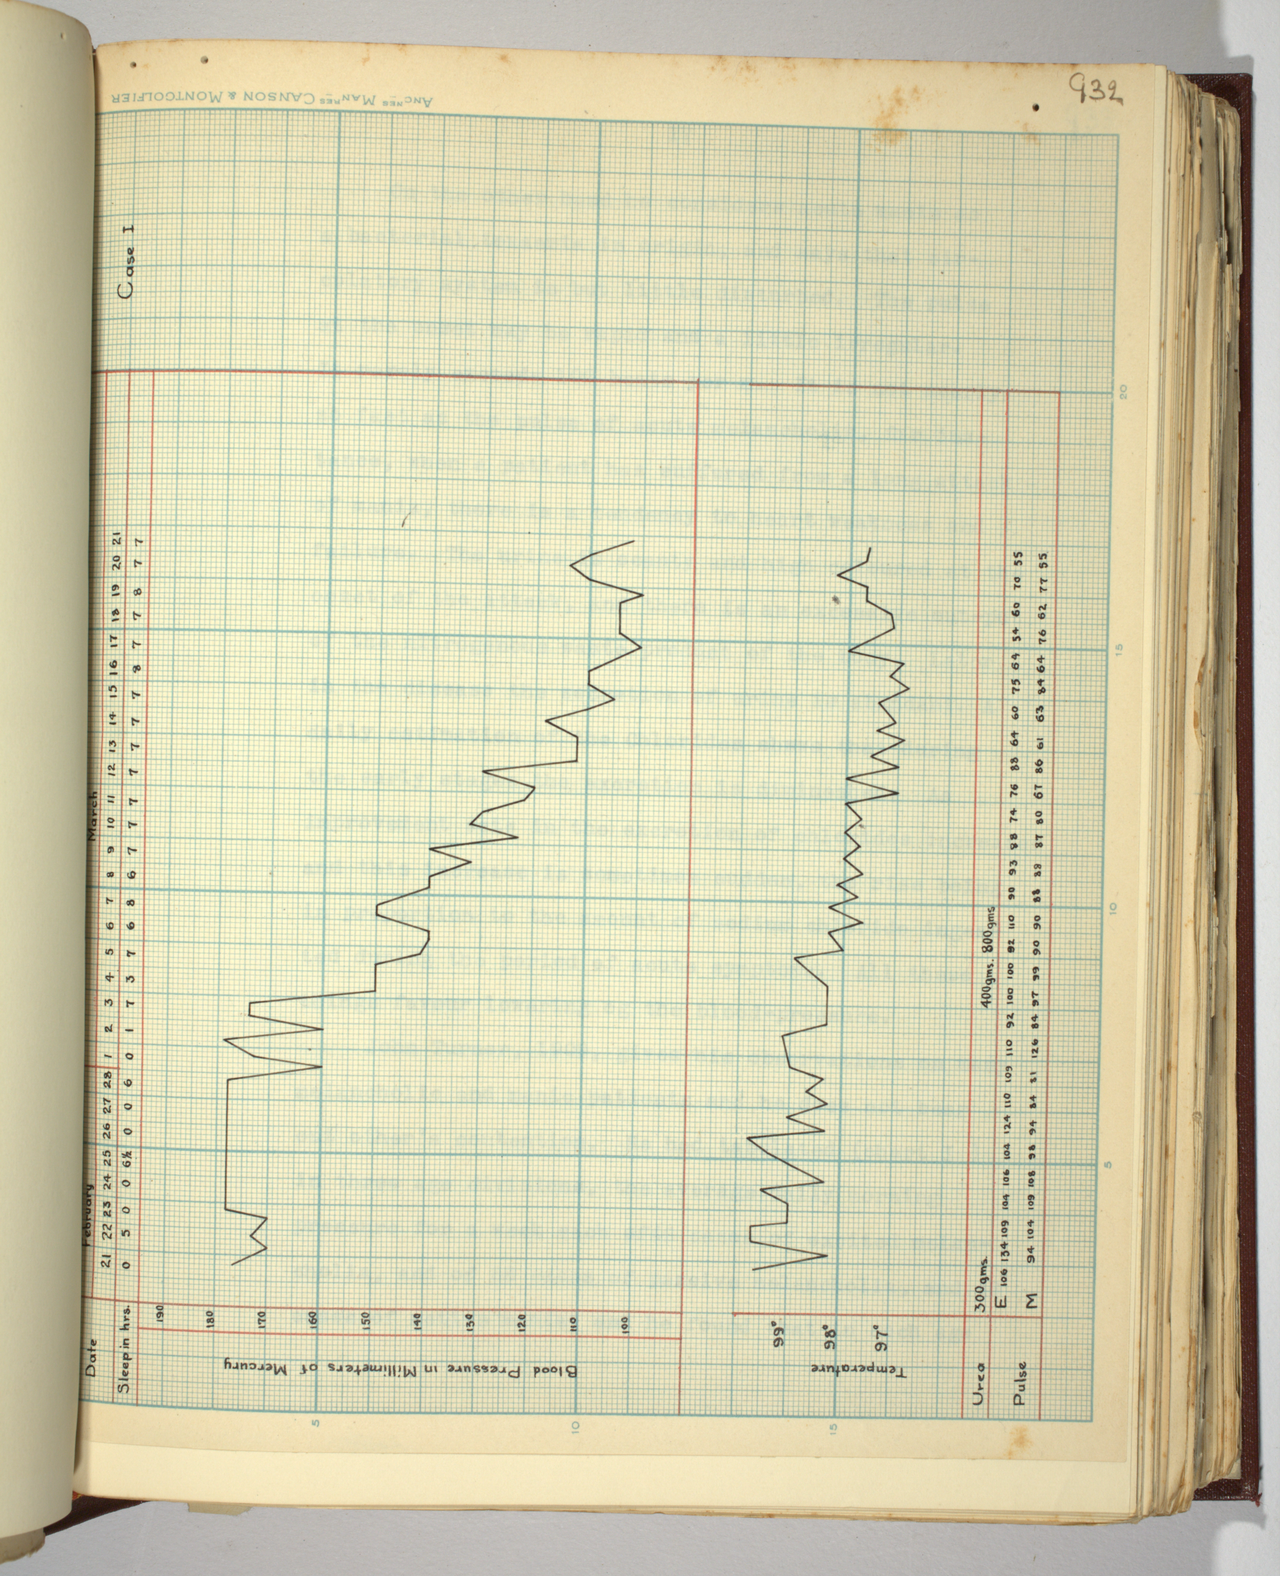 932
ANCNES MANNES CANSON & MONTGOLFIER
Case I
February March
Date 21 22 23 24 25 26 27 28 1 2 3 4 5 6 7 8 9 10 11 12 13 14 15 16 17 18 19 20 21
Sleep in hrs. 0 5 0 0 6½ 0 0 6 0 1 7 3 7 6 8 6 7 7 7 7 7 7 7 8 7 7 8 7 7
Blood Pressure in Millimeters of Mercury
190
180
170
160
150
140
130
120
110
100
Temperature
99°
98°
97°
Urea 300gms. 400gms. 800gms
Pulse E 106 134 109 104 106 104 124 110 109 110 92 100 100 82 110 90 93 88 74 76 88 64 60 75 64 54 60 70 55
M 94 104 109 108 98 94 84 81 126 84 97 99 90 90 88 89 87 80 67 86 61 63 84 64 76 62 77 55
5 10 15
5 10 15 20